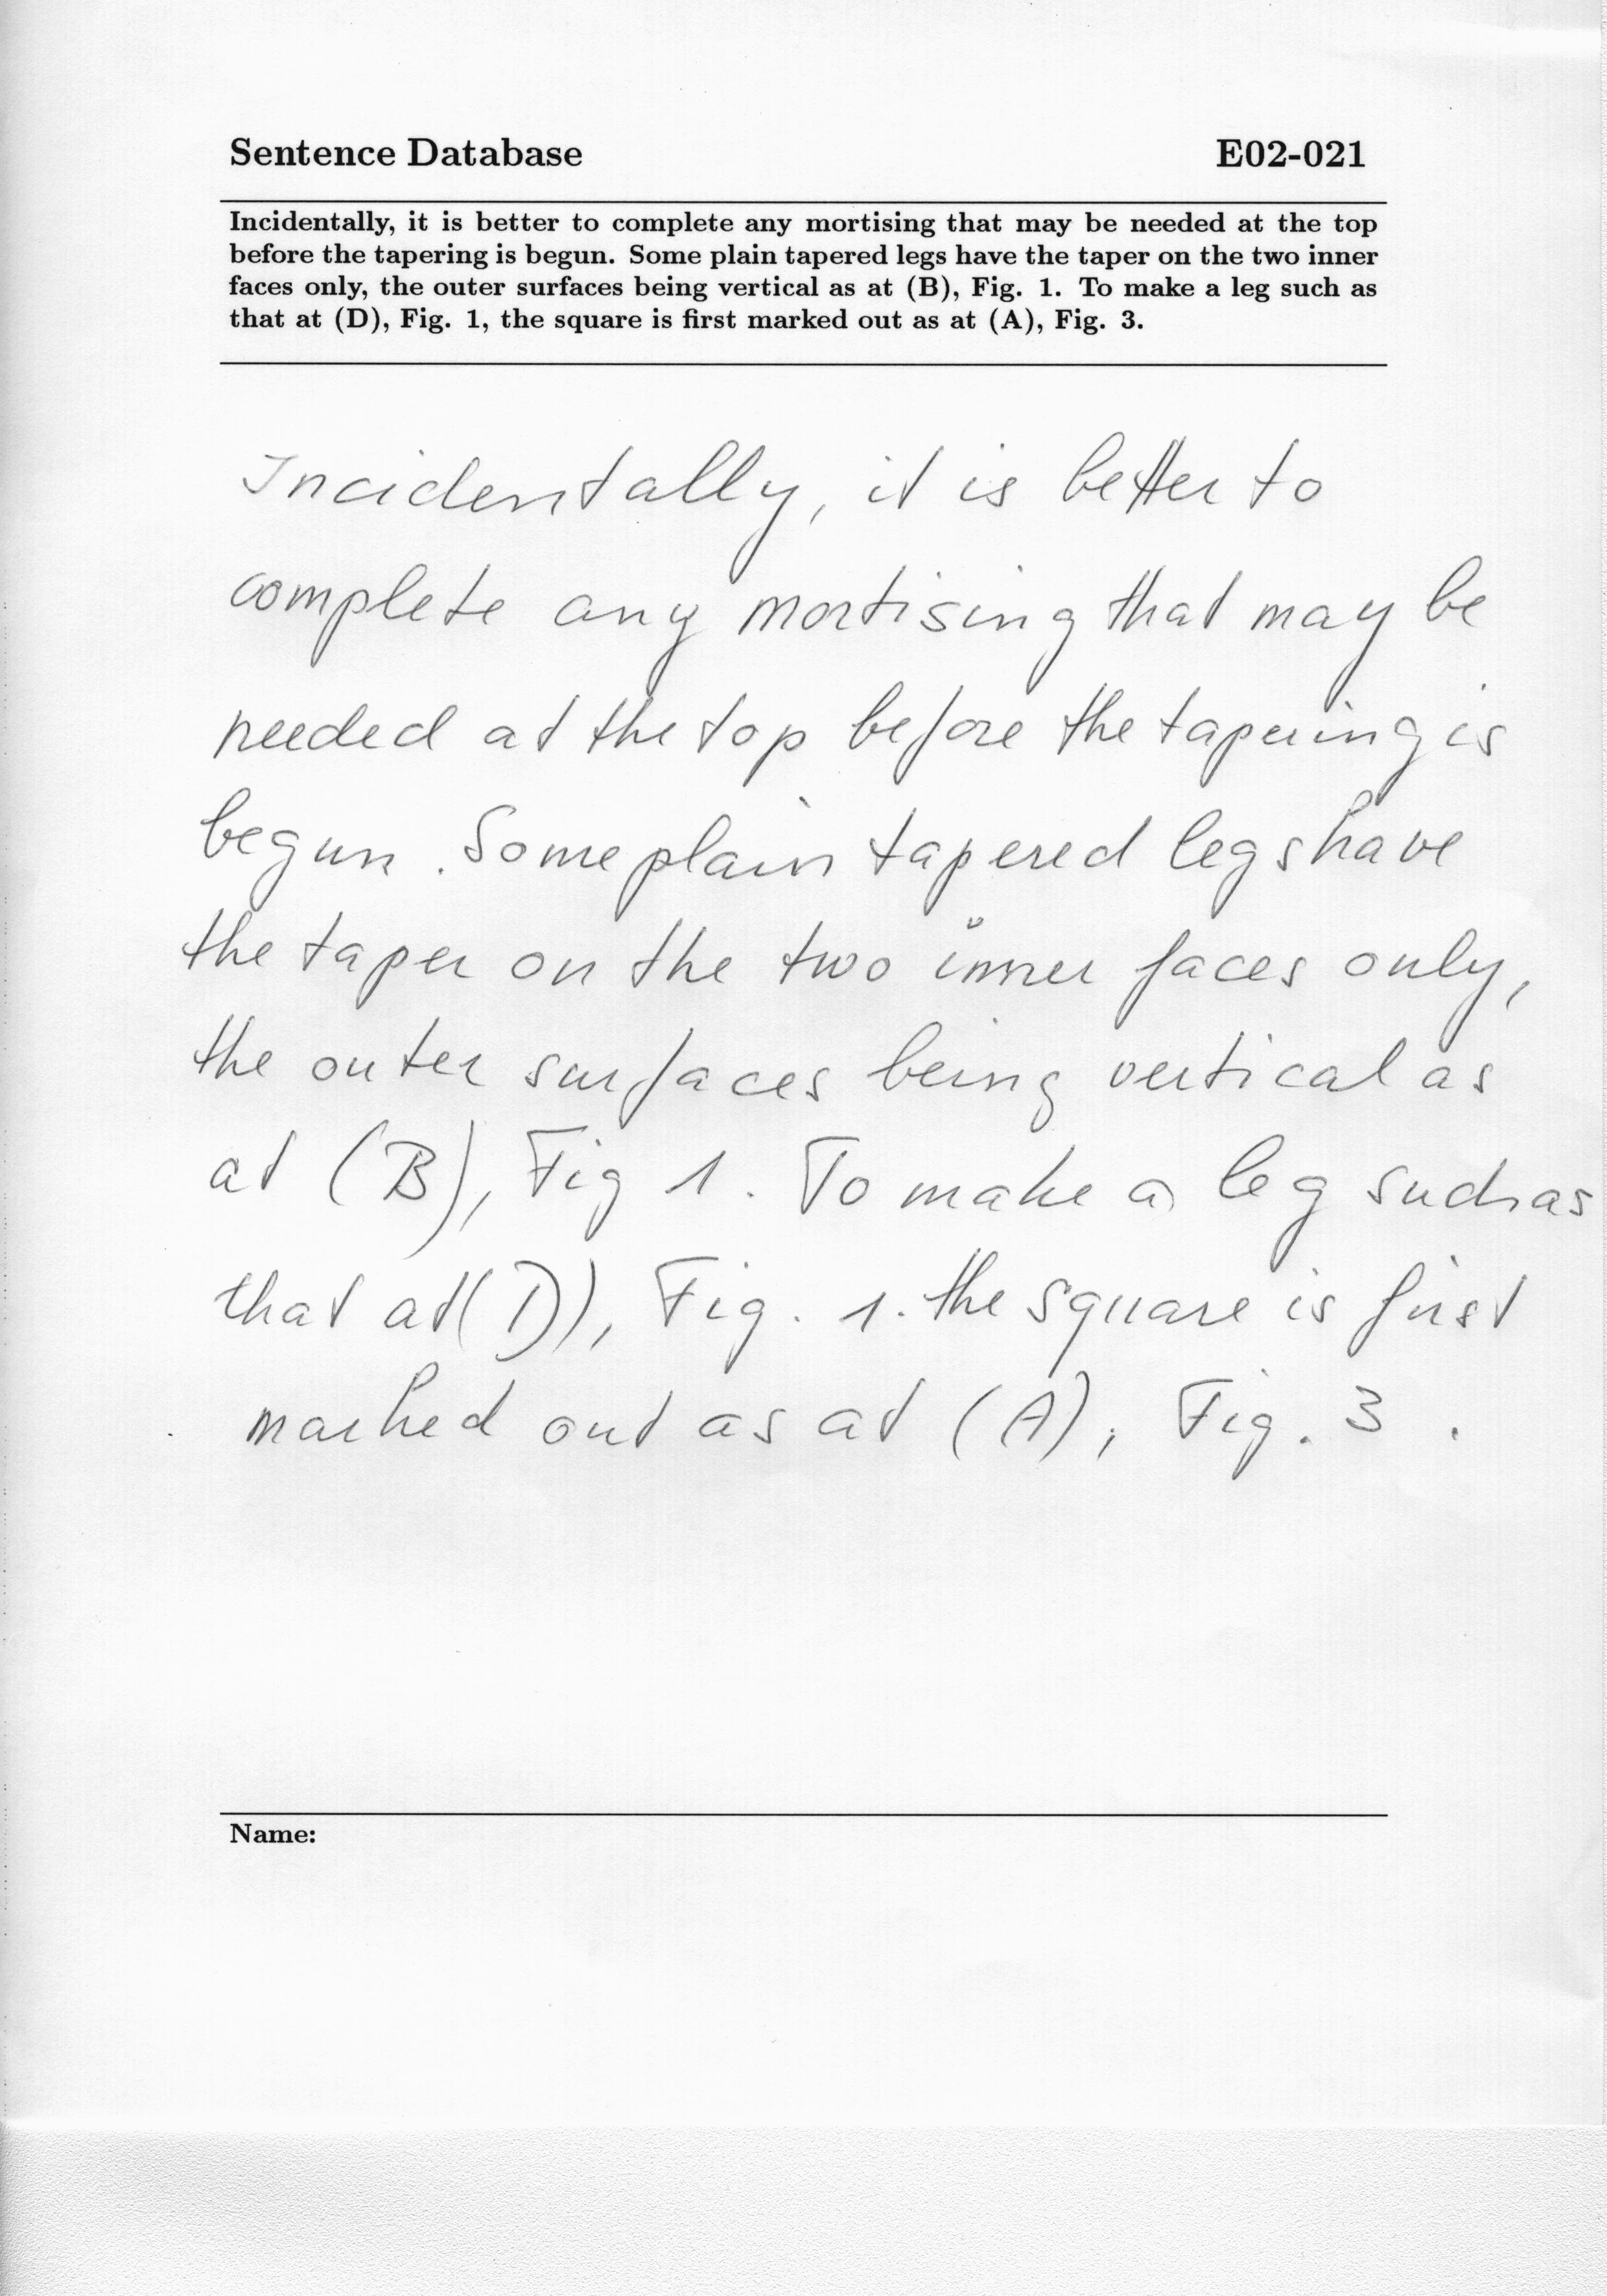 Sentence Database E02-021
Incidentally, it is better to complete any mortising that may be needed at the top
before the tapering is begun. Some plain tapered legs have the taper on the two inner
faces only, the outer surfaces being vertical as at (B), Fig. 1. To make a leg such as
that at (D), Fig. 1, the square is first marked out as at (A), Fig. 3.
Incidentally, it is better to
complete any mortising that may be
needed at the top before the tapering is
begun. Some plain tapered legs have
the taper on the two inner faces only,
the outer surfaces being vertical as
at (B), Fig 1. To make a leg such as
that at (D), Fig. 1. the square is first
marked out as at (A), Fig. 3.
Name: